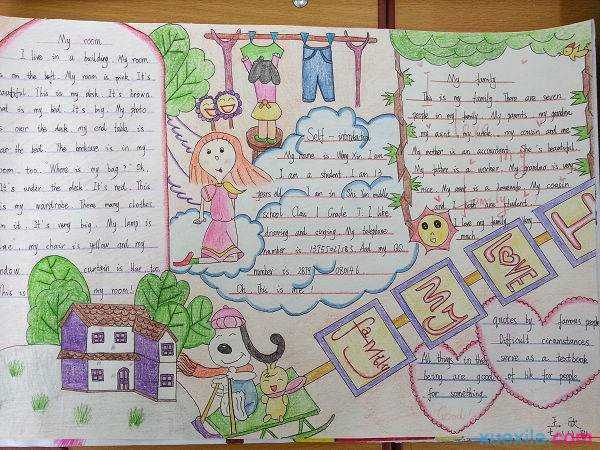 My room
I live in a building. My room
is on the left. My room is pink. It's
beautiful. This is my desk. It's brown.
that is my bed. it's big. My photo
is over the desk my end table is
near the bed. The bookcase is in my
room too. "Where is my bag?" Sh.
It's under the desk. It's red. This
is my wardrobe. There many clothes
in it. It's very big. My lamp is
my chair is yellow and my
window curtain is blue, too.
This is my room!
Self-introduction
My name is Wang Xin. I am
I am a student. I am 12
years old. I am in middle
school Class 1 Grade 7. I like
drawing and singing. My telephone
number is And my QQ
number is
Oh. This is me!
My family
This is my family. There are seven
people in my family. My parents, my grandma
my aunt, my uncle, my cousin and me.
My mother is an accountant. She is beautiful.
My father is a worker. My grandma is very
nice. My aunt is a My cousin
and I both student.
I love my family very
much.
I
LOVE
My
family
quotes by famous people
Difficult circumstances
serve as a textbook
of life for people
All things in their
being are good
for something.
王欣
xuexila.com